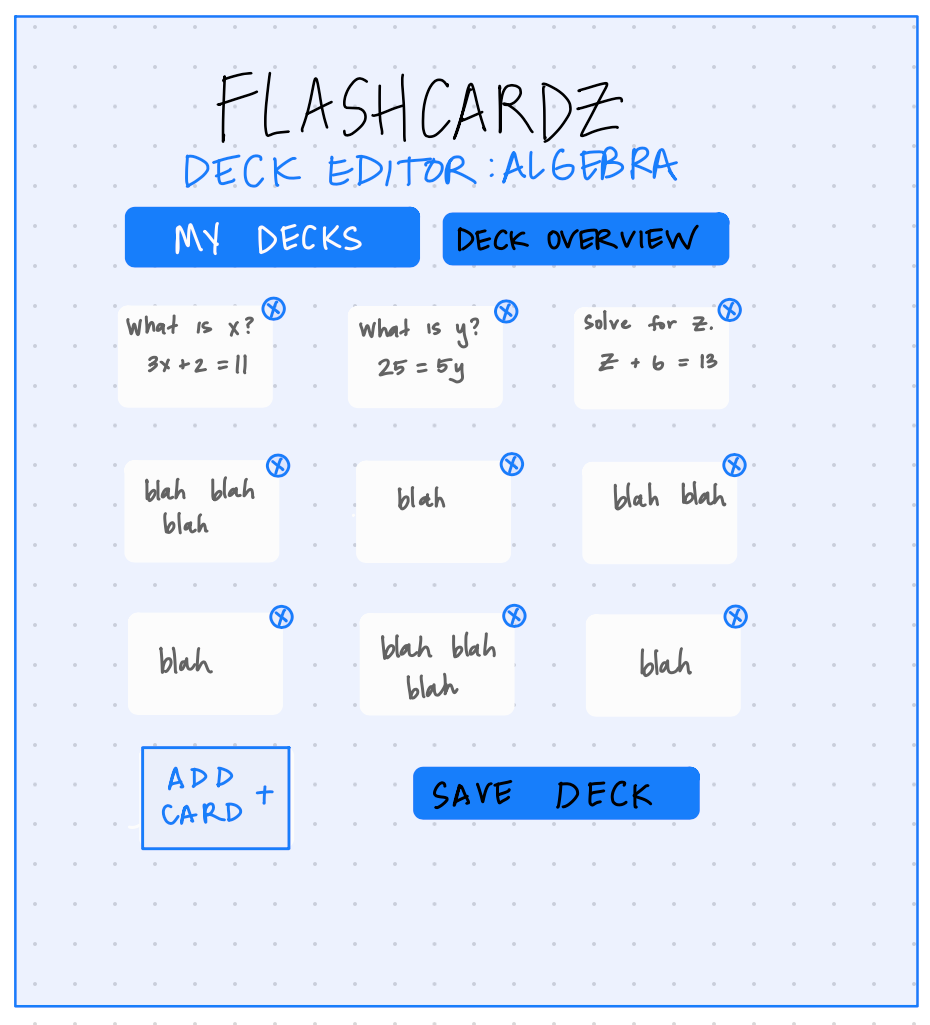 FLASHCARDZ
DECK EDITOR: ALGEBRA
MY DECKS
DECK OVERVIEW
What is x?
3x + 2 = 11
What is y?
25 = 5y
Solve for z.
z + 6 = 13
blah blah
blah
blah
blah blah
blah
blah blah
blah
blah
ADD
CARD +
SAVE DECK